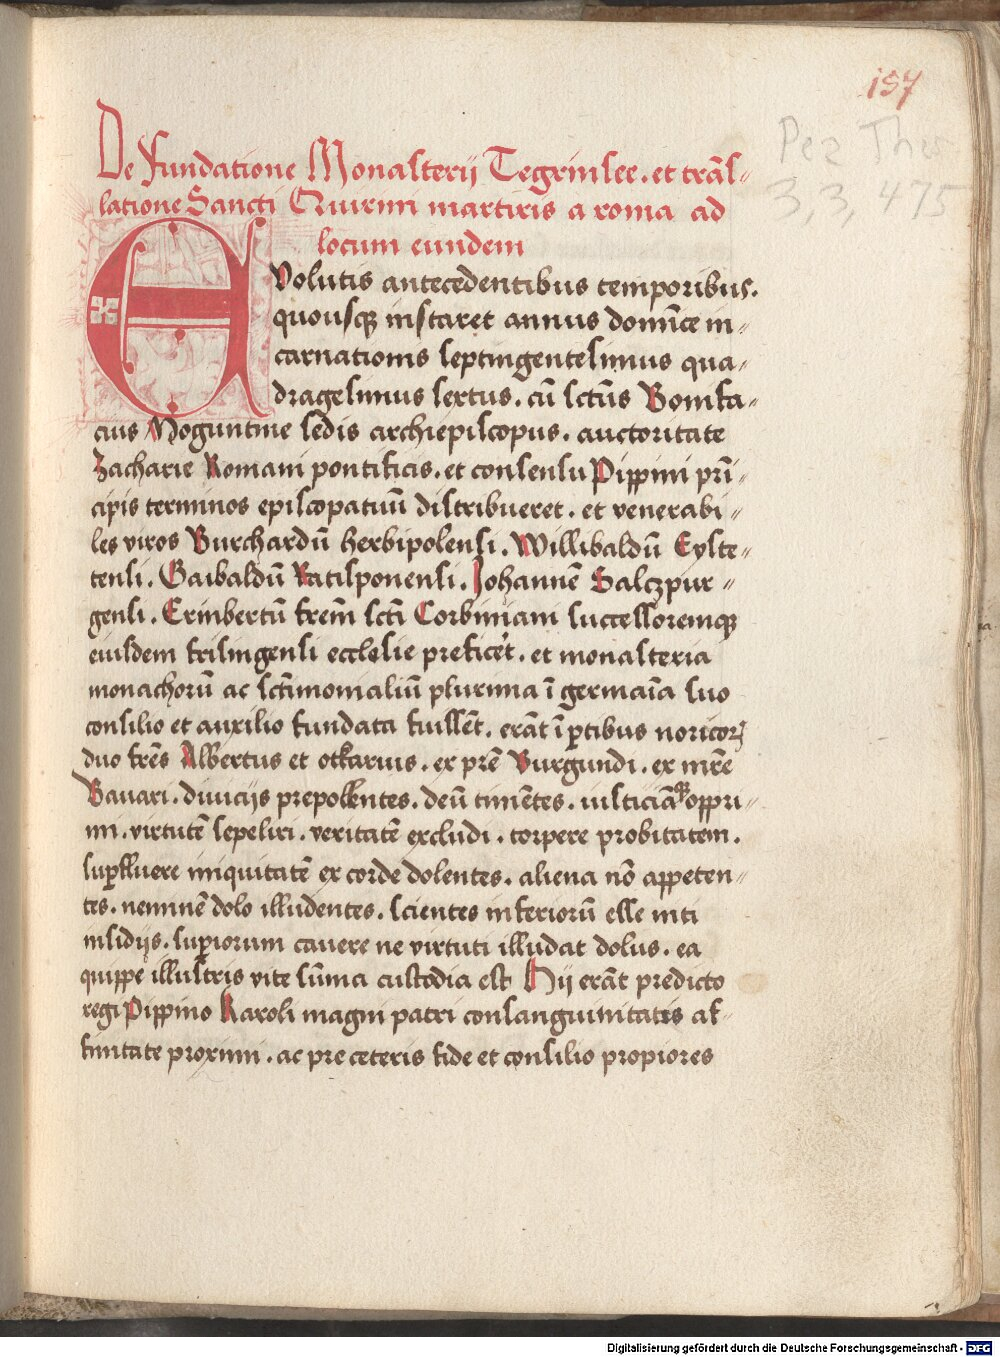 157
Pez Thes
3, 3, 475
De Fundatione Monasterij Tegrinsee . et trãs-
latione Sancti Quirini martiris a roma ad
locum eundem
EVolutis antecedentibus temporibus.
quousqꝫ instaret annus domĩce in-
carnationis septingentesimus qua-
dragesimus sextus . cũ sctũs Bonifa-
cius Moguntine sedis archiepiscopus . auctoritate
Zacharie Romani pontificis . et consensu Pippini prĩ-
cipis terminos episcopatiuũ distribueret . et venerabi-
les viros Burchardũ herbipolensi . Willibaldũ Eyste-
tensi . Gaibaldũ Ratisponensi . Johannẽ Salczpur-
gensi . Erinbertũ frem̃ scti̅ Corbiniani successoremqꝫ
eiusdem frisingensi ecclesie preficẽt . et monasteria
monachorũ ac sctĩmonialiũ plurima ĩ germaĩa suo
consilio et auxilio fundata fuissẽt . erãt ĩ ꝑtibus noricoꝝ
duo frẽs Albertus et otkarius . ex prẽ Burgundi . ex mrẽ
Bauari . diuicijs prepollentes . deũ timẽtes . iusticiãqꝫ oppri-
mi . virtutẽ sepeliri . veritatẽ excludi . torpere probitatem .
suꝑfluere iniquitatẽ ex corde dolentes . aliena nõ appeten-
tes . neminẽ dolo illudentes . scientes inferiorũ esse niti
insidijs . suꝑiorum cauere ne virtuti illudat dolus . ea
quippe illustris vite sũma custodia est Hij erãt predicto
regi Pippino Karoli magni patri consanguinitatis af-
finitate proximi . ac pre ceteris fide et consilio propiores
Digitalisierung gefördert durch die Deutsche Forschungsgemeinschaft - DFG